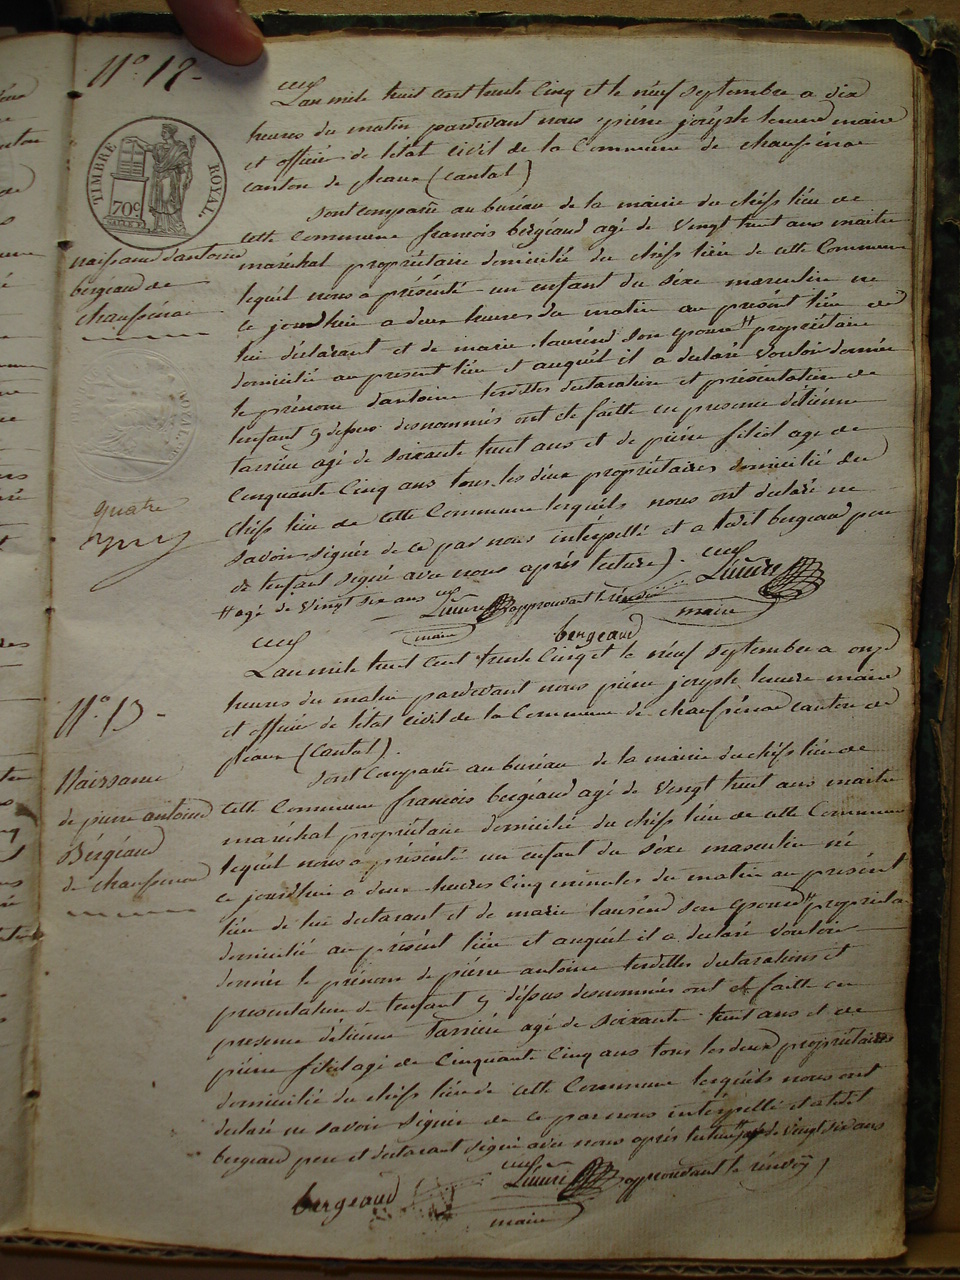 N.º 12 -
TIMBRE ROYAL
70 c
naissance d'antoine
bergeaud de
chaussenac
quatre
L'an mile huit cent trente Cinq et le neuf septembre a dix
heures du matin pardevant nous pierre joseph maire
et officier de l'état civil de la Commune de chaussenac
canton de pleaux (cantal)
sont comparu au bureau de la mairie du cheff lieu de
cette Commune francois bergeaud agé de vingt huit ans maitre
maréchal propriétaire domicilié du cheff lieu de cette Commune
lequel nous a présenté un enfant du sexe masculin ne
ce jourdhui a deux heures du matin au present lieu de
lui déclarant et de marie son epouse # propriétaire
domicilié au present lieu et auquel il a declaré vouloir donner
le prénom d'antoine lesdittes declaration et présentation de
lenfant y dessus desnommés ont eté faitte en presence détienne
tarrieu agé de soixante huit ans et de pierre filiol age de
Cinquante Cinq ans tous les deux propriétaires domicilié du
cheff lieu de cette Commune lesquels nous ont declaré ne
savoir signér de ce par nous intérpellé et a ledit bergeaud pere
de lenfant signé avec nous après lecture).
# agé de vingt six ans
approuvant le renvoi
maire
maire
bergeaud
N.º 13 -
Naissance
de pierre antoine
Bérgeaud
de chaussenac
L'an mile huit cent trente Cinq et le neuf septembre a onze
heures du matin pardevant nous pierre joseph maire
et officier de l'état civil de la Commune de chaussenac canton de
pleaux (cantal).
sont Comparu au bureau de la mairie du cheff lieu de
cette Commune francois bergeaud agé de vingt huit ans maitre
maréchal propriétaire domicilié du cheff lieu de cette Commune
lequel nous a présenté un enfant du sexe masculin né
ce jourdhui a deux heures Cinq minutes du matin au présent
lieu de lui declarant et de marie son epouse #
domicilié au présent lieu et auquel il a declaré vouloir
donner le prénom de pierre antoine lesdittes declarations et
presentation de lenfant y dessus desnommés ont eté faitte en
presence détienne tarrieu agé de soixante huit ans et de
pierre filiol agé de Cinquante Cinq ans tous les deux propriétaires
domicilié du cheff lieu de cette Commune lesquels nous ont
declaré ne savoir signér de ce par nous intérpellé et a ledit
bergeaud pere et declarant signé avec nous après lecture # de vingt six ans
approuvant le renvoy)
bergeaud
maire